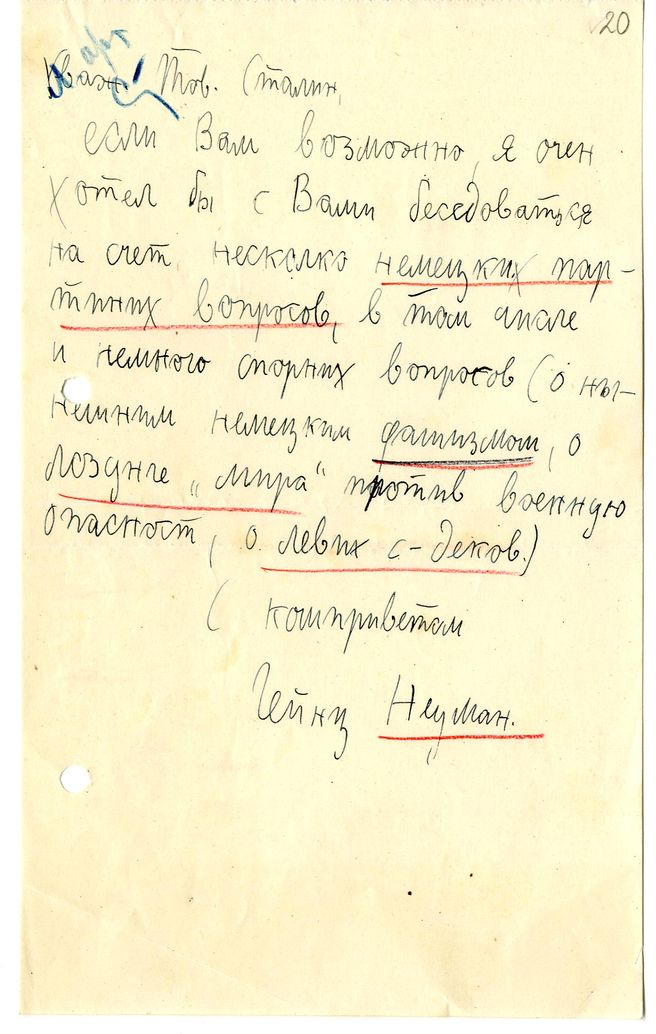 20
арх
Уваж. Тов. Сталин,
если Вам возможно, я очен
хотел бы с Вами беседоваться
на счет несколко немецких пар-
тиних вопросов, в том числе
и немного спорних вопросов (о ны-
нешним немецким фашизмом, о
лозунге „мира" против военную
опасност, о левих с-деков.)
С комприветом
Гейнц Неуман.